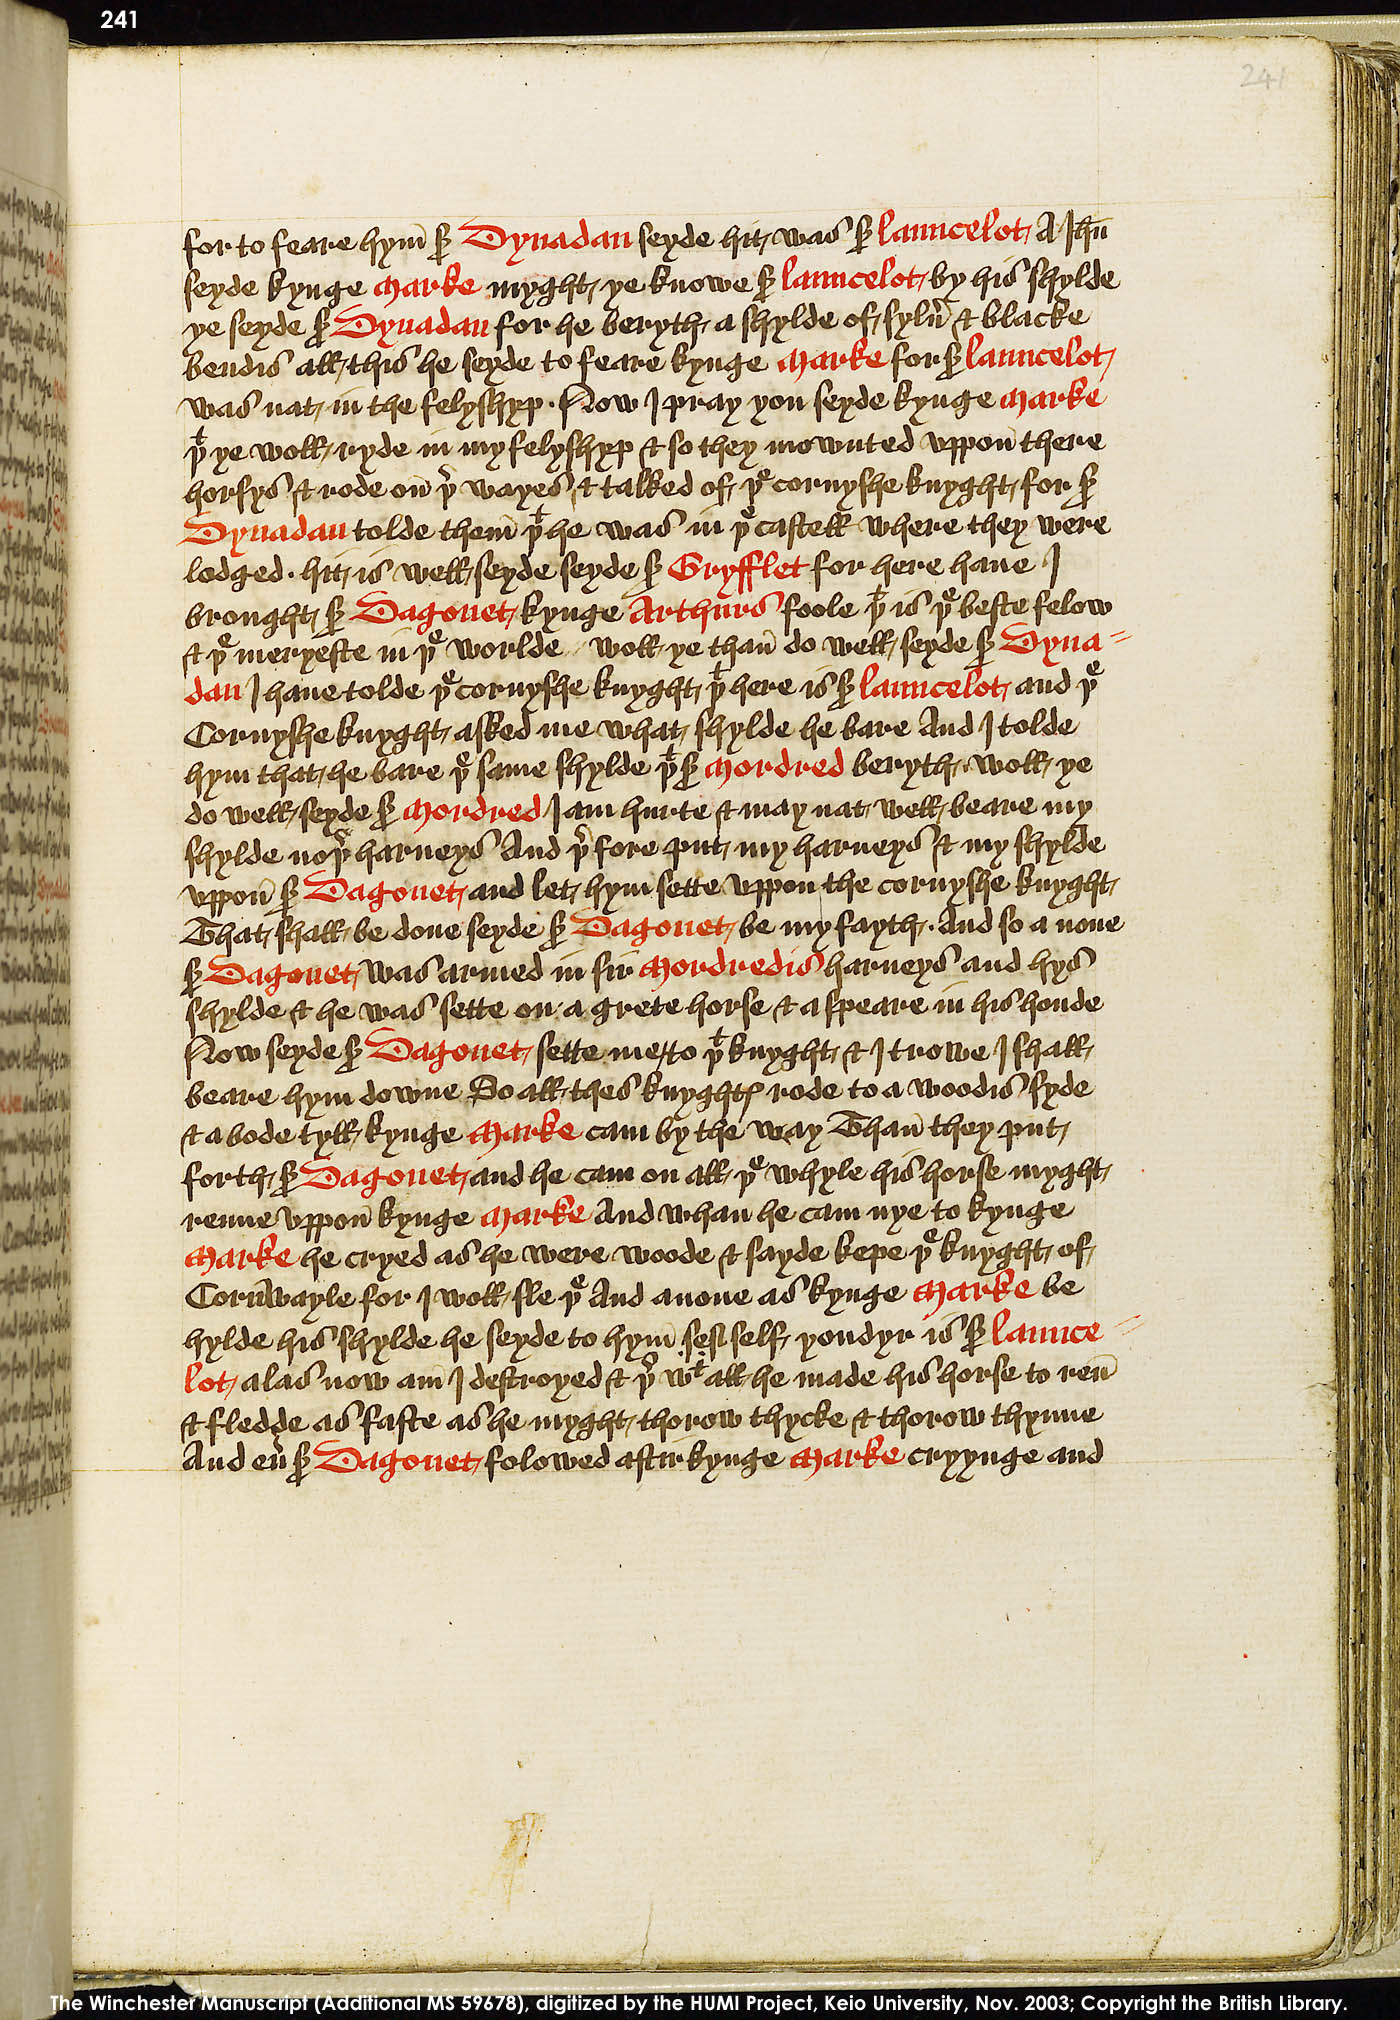 241
241
for to feare hym̄ ẜ Dynadan seyde hit was ẜ launcelot A Ihū
seyde kynge Marke myght ye knowe ẜ launcelot by his shylde
ye seyde ẜ Dynadan for he beryth a shylde of sylu̅ & blacke
bendis all this he seyde to feare kynge Marke for ẜ launcelot
was nat in the felyshyp · Now I pray you seyde kynge Marke
þᵗ ye woll ryde in my felyshyp & so they mownted vppon̄ there
horsys & rode on̄ þʳ wayes & talked of þᵉ cornyshe knyght for ẜ
Dynadan tolde them̄ þᵗ he was in þᵉ castell where they were
lodged · hit is well seyde seyde ẜ Gryfflet for here haue I
brought ẜ Dagonet kynge Arthurs foole þᵗ is þᵉ beste felow
& þᵉ meryeste in þᵉ worlde woll ye than̄ do well seyde ẜ Dyna=
dan I haue tolde þᵉ cornyshe knyght þᵗ here is ẜ launcelot and þᵉ
Cornyshe knyght asked me what shylde he bare And I tolde
hym that he bare þᵉ same shylde þᵗ ẜ Mordred beryth · woll ye
do well seyde ẜ Mordred I am hurte & may nat well beare my
shylde noþʳ harneys And þʳfore put my harneys & my shylde
vppon̄ ẜ Dagonet and let hym sette vppon the cornyshe knyght
That shall be done seyde ẜ Dagonet be my fayth · And so a none
ẜ Dagonet was armed in sir Mordredis harneys and hys
shylde & he was sette on a grete horse & a speare in his honde
Now seyde ẜ Dagonet sette me to þᵗ knyght & I trowe I shall
beare hym downe So all thes knyghtꝭ rode to a woodis syde
& abode tyll kynge Marke cam by the way Than̄ they put
forth ẜ Dagonet and he cam on all þᵉ whyle his horse myght
renne vppon̄ kynge Marke And whan he cam nye to kynge
Marke he cryed as he were woode & sayde kepe þᵉ knyght of
Corn̄wayle for I woll sle þᵉ And anone as kynge Marke be
hylde his shylde he seyde to hym̄ self yondyr is ẜ launce=
lot alas now am̄ I destroyed & þʳ wᵗ all he made his horse to ren̄
& fledde as faste as he myght thorow thycke & thorow thynne
And eu̅ ẜ Dagonet folowed aftir kynge Marke cryynge and
The Winchester Manuscript (Additional MS 59678), digitized by the HUMI Project, Keio University, Nov. 2003; Copyright the British Library.